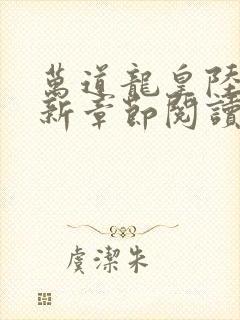 萬道龍皇陸
新章節閱讀
虞潔朱